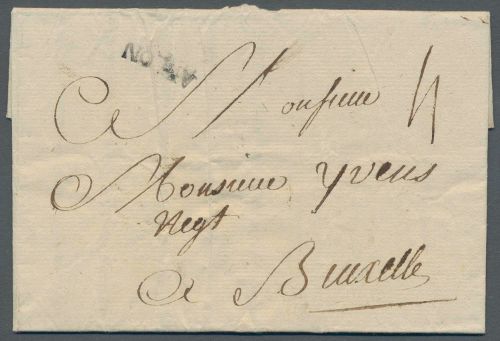 A Monsieur
Monsieur Yvens
Negt
a Bruxelle
4